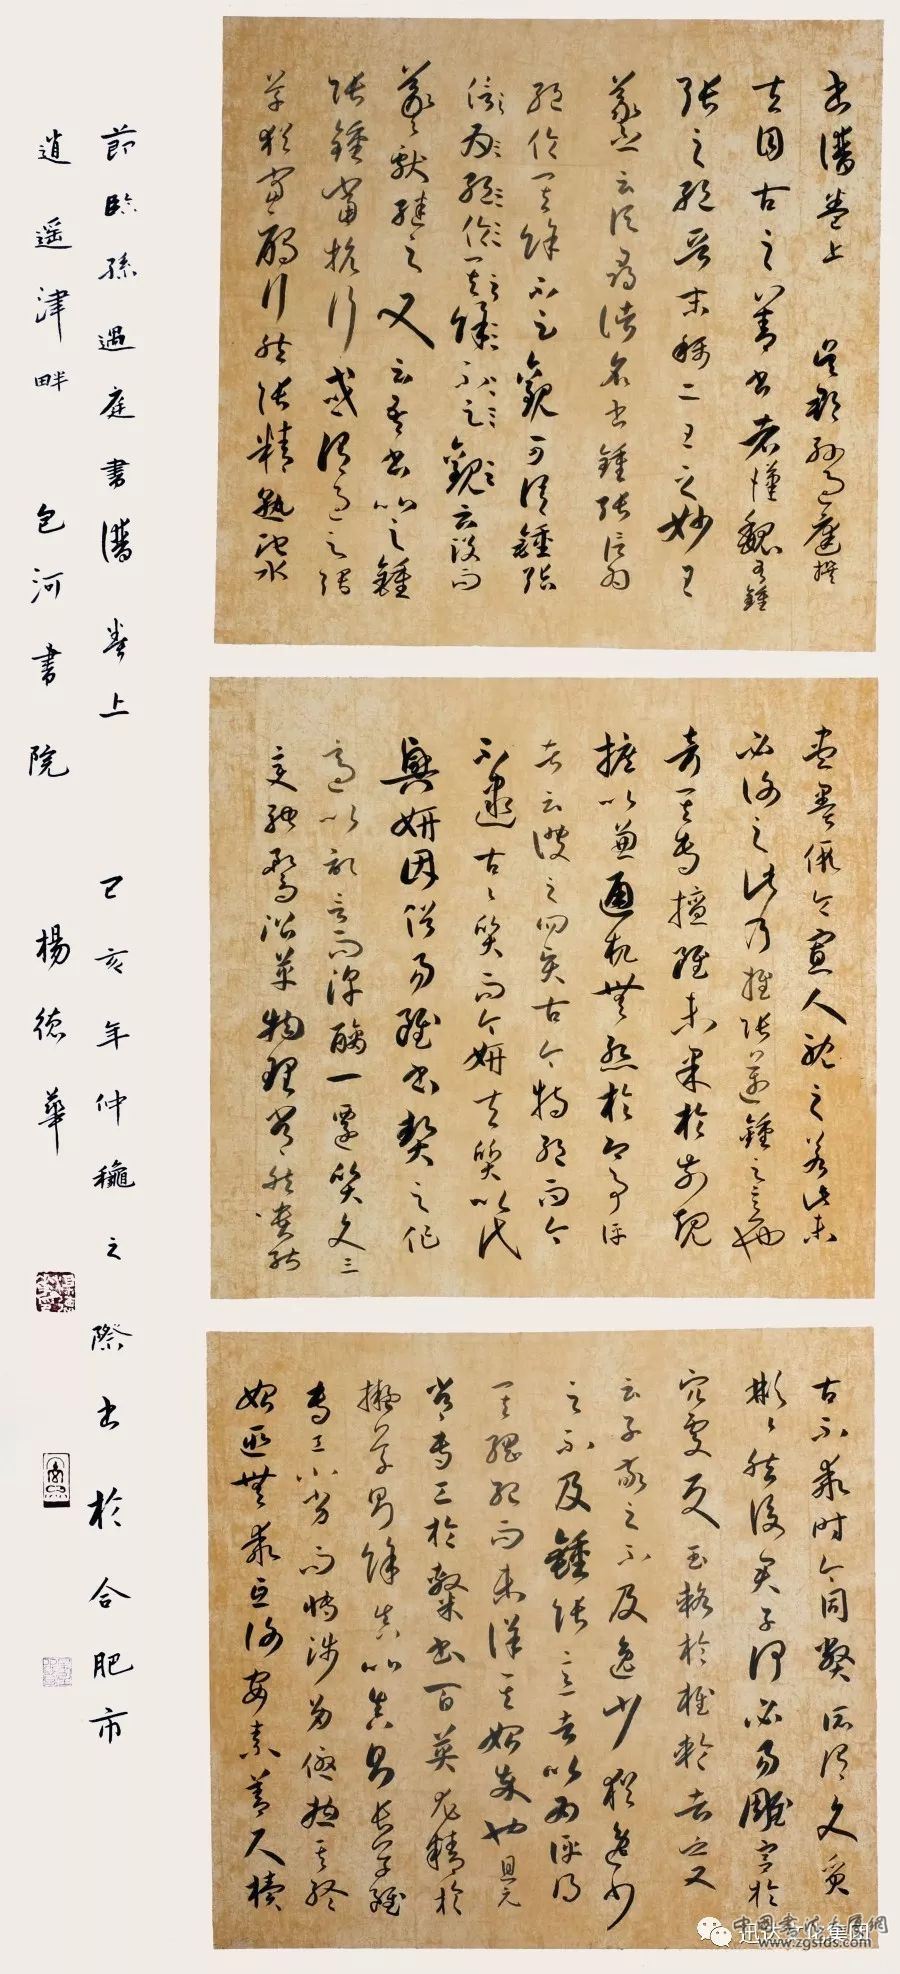 書譜卷上 吳郡孫過庭撰
夫自古之善書者漢魏有鍾
張之絕晉末稱二王之妙王
羲之云頃尋諸名書鍾張信為
絕倫其餘不足觀可謂鍾張
信為絕倫其餘不足觀云沒而
羲獻繼之又云吾書比之鍾
張鍾當抗行或謂過之張
草猶當鴈行然張精熟池水
盡墨假令寡人耽之若此未
必謝之此乃推張邁鍾之意也
考其專擅雖未果於前規
摭以兼通故無慚於即事評
者云彼之四賢古今特絕而今
不逮古古質而今妍夫質以代
興妍因俗易雖書契之作
適以記言而淳醨一遷質文三
變馳騖沿革物理常然貴能
古不乖時今同弊所謂文質
彬彬然後君子何必易雕宮於
穴處反玉輅於椎輪者乎又
云子敬之不及逸少猶逸少
之不及鍾張意者以為評得
其綱紀而未詳其始卒也且元
常專工於隸書百英尤精於
擬草則餘真比真則長草雖
專工小劣而博涉多優總其終
始匪無乖互謝安素善尺牘
節臨孫過庭書譜卷上 己亥年仲龝之際書於合肥市
逍遥津畔 包河書院 楊德華
中国书法大展网
www.zgsfds.com
迅达文化集团